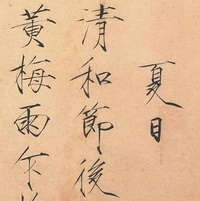 夏日
清和節後
黃梅雨乍